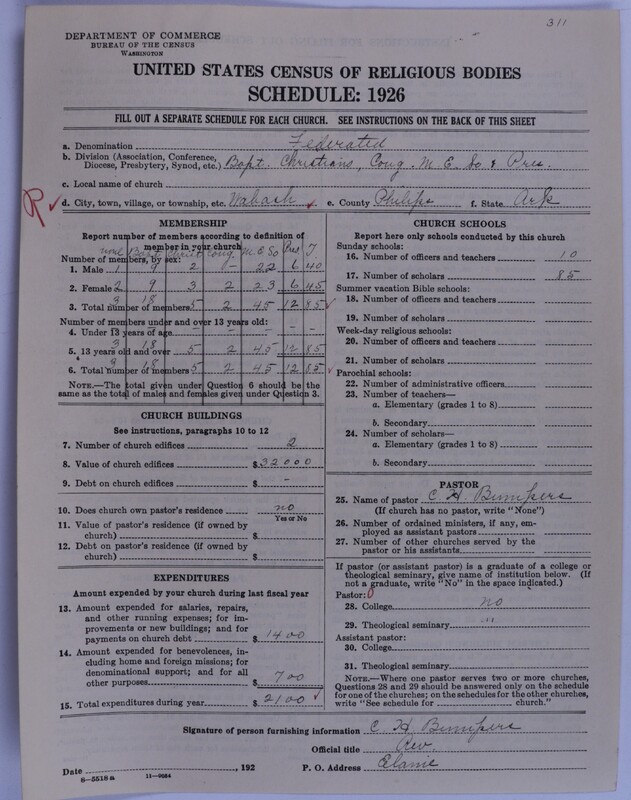 311
DEPARTMENT OF COMMERCE
BUREAU OF THE CENSUS
WASHINGTON
UNITED STATES CENSUS OF RELIGIOUS BODIES
SCHEDULE: 1926
FILL OUT A SEPARATE SCHEDULE FOR EACH CHURCH. SEE INSTRUCTIONS ON THE BACK OF THIS SHEET
a. Denomination Federated
b. Division (Association, Conference, Diocese, Presbytery, Synod, etc.) Bapt. Christians, Cong. M. E. So & Pres.
c. Local name of church
R d. City, town, village, or township, etc. Wabash e. County Philips f. State Ark
MEMBERSHIP
Report number of members according to definition of member in your church
Bapt Christ Cong. M. E So Pres T
Number of members, by sex:
1. Male 1 9 2 - 22 6 40
2. Female 2 9 3 2 23 6 45
3. Total number of members 3 18 5 2 45 12 85
Number of members under and over 13 years old:
4. Under 13 years of age - - -
5. 13 years old and over 3 18 5 2 45 12 85
6. Total number of members 3 18 5 2 45 12 85
NOTE.—The total given under Question 6 should be the same as the total of males and females given under Question 3.
CHURCH BUILDINGS
See instructions, paragraphs 10 to 12
7. Number of church edifices 2
8. Value of church edifices $ 32000
9. Debt on church edifices $ -
10. Does church own pastor's residence no
Yes or No
11. Value of pastor's residence (if owned by church) $
12. Debt on pastor's residence (if owned by church) $
EXPENDITURES
Amount expended by your church during last fiscal year
13. Amount expended for salaries, repairs, and other running expenses; for improvements or new buildings; and for payments on church debt $ 1400
14. Amount expended for benevolences, including home and foreign missions; for denominational support; and for all other purposes $ 700
15. Total expenditures during year $ 2100
CHURCH SCHOOLS
Report here only schools conducted by this church
Sunday schools:
16. Number of officers and teachers 10
17. Number of scholars 85
Summer vacation Bible schools:
18. Number of officers and teachers
19. Number of scholars
Week-day religious schools:
20. Number of officers and teachers
21. Number of scholars
Parochial schools:
22. Number of administrative officers
23. Number of teachers—
a. Elementary (grades 1 to 8)
b. Secondary
24. Number of scholars—
a. Elementary (grades 1 to 8)
b. Secondary
PASTOR
25. Name of pastor C. H. Bumpers
(If church has no pastor, write "None")
26. Number of ordained ministers, if any, employed as assistant pastors
27. Number of other churches served by the pastor or his assistants
If pastor (or assistant pastor) is a graduate of a college or theological seminary, give name of institution below. (If not a graduate, write "No" in the space indicated.)
Pastor: 0
28. College no
29. Theological seminary "
Assistant pastor:
30. College
31. Theological seminary
NOTE.—Where one pastor serves two or more churches, Questions 28 and 29 should be answered only on the schedule for one of the churches; on the schedules for the other churches, write "See schedule for church."
Signature of person furnishing information C H Bumpers
Official title Rev.
Date , 192 P. O. Address Elaine
8—5518 a 11—9024